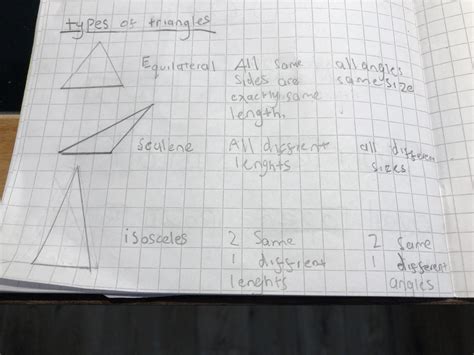 types of triangles
Equilateral All same all angles
sides are same size
exactly same
length.
scalene All diffrent all different
lenghts sizes
isosceles 2 same 2 same
1 diffrent 1 different
lenghts angles